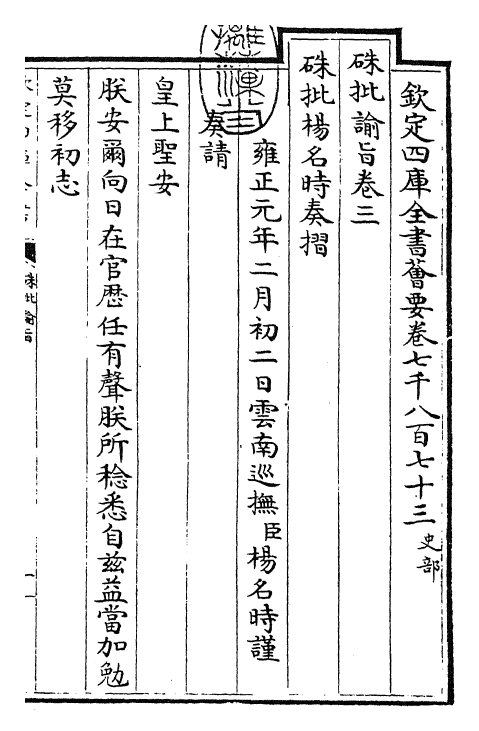 欽定四庫全書薈要卷七千八百七十三 史部
硃批諭旨卷三
硃批楊名時奏摺
雍正元年二月初二日雲南巡撫臣楊名時謹
奏請
皇上聖安
朕安爾向日在官歷任有聲朕所稔悉自兹益當加勉
莫移初志
硃批諭旨